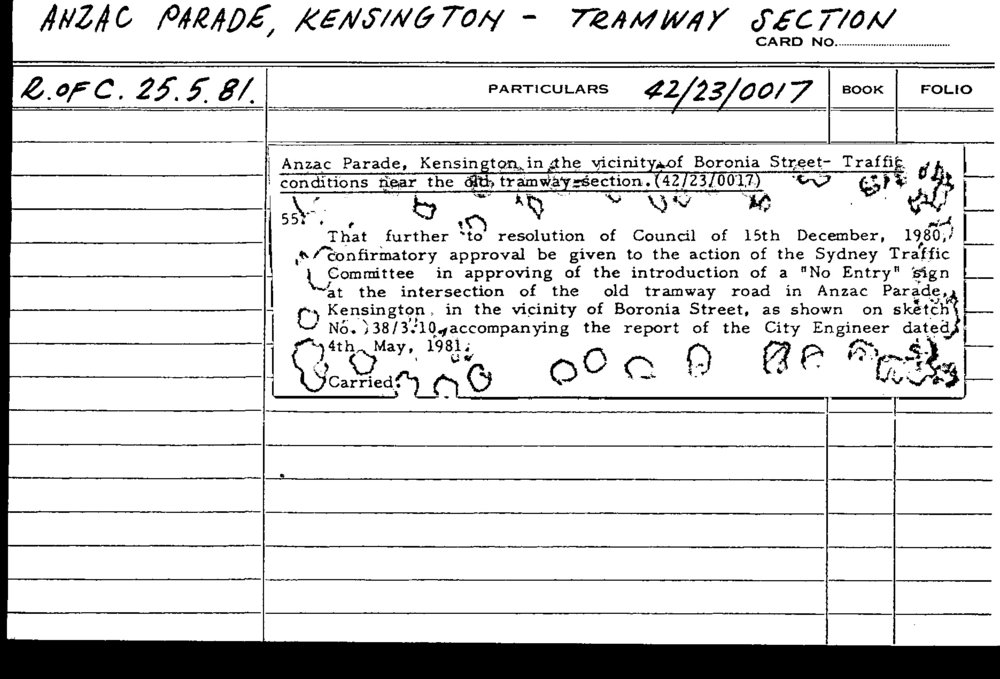 ANZAC PARADE, KENSINGTON - TRAMWAY SECTION
CARD No.
R. OF C. 25.5.81. PARTICULARS 42/23/0017 BOOK FOLIO
Anzac Parade, Kensington in the vicinity of Boronia Street- Traffic
conditions near the old tramway section. (42/23/0017)
55.
That further to resolution of Council of 15th December, 1980,
confirmatory approval be given to the action of the Sydney Traffic
Committee in approving of the introduction of a "No Entry" sign
at the intersection of the old tramway road in Anzac Parade,
Kensington, in the vicinity of Boronia Street, as shown on sketch
No. 38/3.10, accompanying the report of the City Engineer dated
4th May, 1981.
Carried.